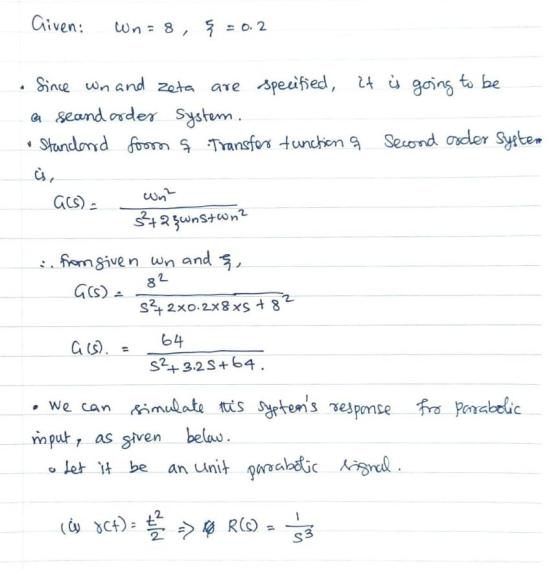 Given: ωn = 8, ξ = 0.2
• Since ωn and zeta are specified, it is going to be
a second order System.
• Standard form of Transfer function of Second order System
is,
G(s) = ωn² / s²+2ξωns+ωn²
∴ from given ωn and ξ,
G(s) = 8² / s²+2×0.2×8×s + 8²
G(s). = 64 / s²+3.2s+64.
• We can simulate this system's response fro parabolic
input, as given below.
• Let it be an unit parabolic signal.
(i) r(t) = t²/2 ⇒ R(s) = 1/s³